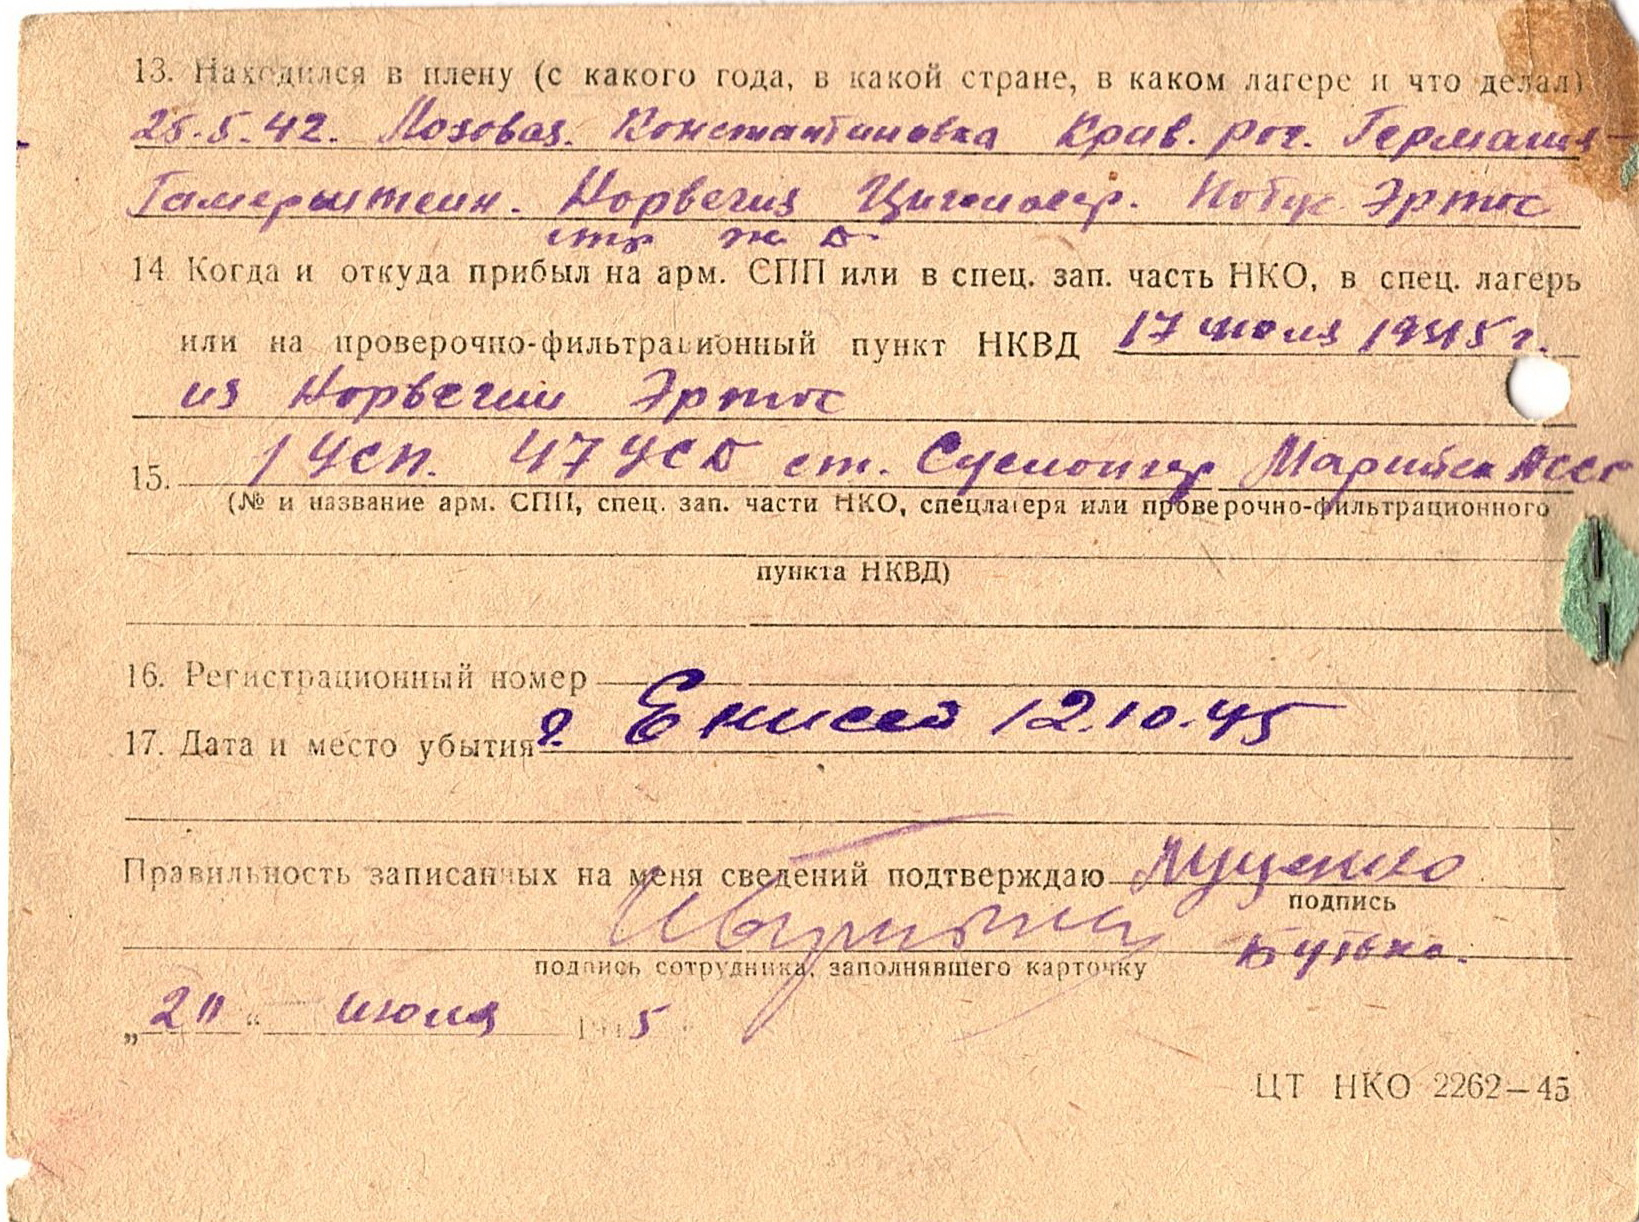 13. Находился в плену (с какого года, в какой стране, в каком лагере и что делал)
25.5.42. Лозовая. Константиновка Крив. рог. Германия
Гамерштейн. Норвегия Эртос
стр ж д
14 Когда и откуда прибыл на арм. СПП или в спец. зап. часть НКО, в спец. лагерь
или на проверочно-фильтрационный пункт НКВД 17 июля 1945 г.
из Норвегии Эртос
15. 1 УСП. 47 УСД ст. Суслонгер Марийск АССР
(№ и название арм. СПП, спец. зап. части НКО, спецлагеря или проверочно-фильтрационного
пункта НКВД)
16. Регистрационный номер
17. Дата и место убытия г. Енисей 12.10.45
Правильность записанных на меня сведений подтверждаю Луценко
подпись
Бутько.
подпись сотрудника, заполнявшего карточку
„20“ июля 1945
ЦТ НКО 2262—45